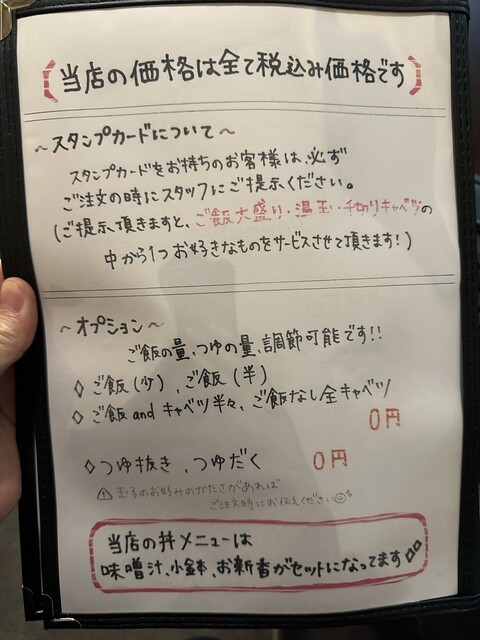 当店の価格は全て税込み価格です
～スタンプカードについて～
スタンプカードをお持ちのお客様は、必ず
ご注文の時にスタッフにご提示ください。
(ご提示頂きますと、ご飯大盛り・温玉・千切りキャベツの
中から1つお好きなものをサービスさせて頂きます!)
～オプション～
ご飯の量、つゆの量、調節可能です!!
◇ご飯(少)、ご飯(半)
◇ご飯andキャベツ半々、ご飯なし全キャベツ
0円
◇つゆ抜き、つゆだく 0円
⚠玉子のお好みのかたさがあれば
ご注文時にお伝えください☺
当店の丼メニューは
味噌汁、小鉢、お新香がセットになってます◇◇